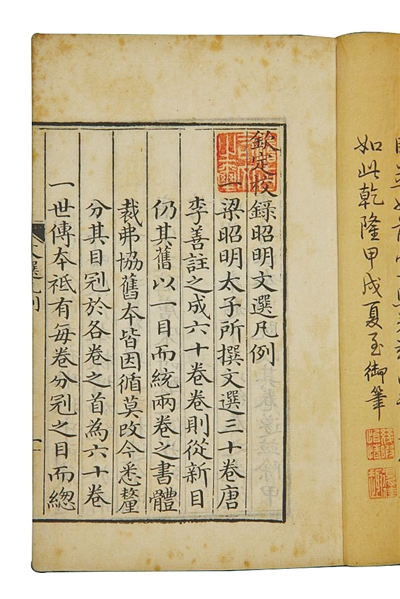 如此乾隆甲戌夏至御筆
欽定校錄昭明文選凡例
梁昭明太子所撰文選三十卷唐
李善註之成六十卷卷則從新目
仍其舊以一目而統兩卷之書體
裁弗協舊夲皆因循莫改今悉釐
分其目冠於各卷之首為六十卷
一世傳夲祗有每卷分冠之目而緫
文選凡例
一